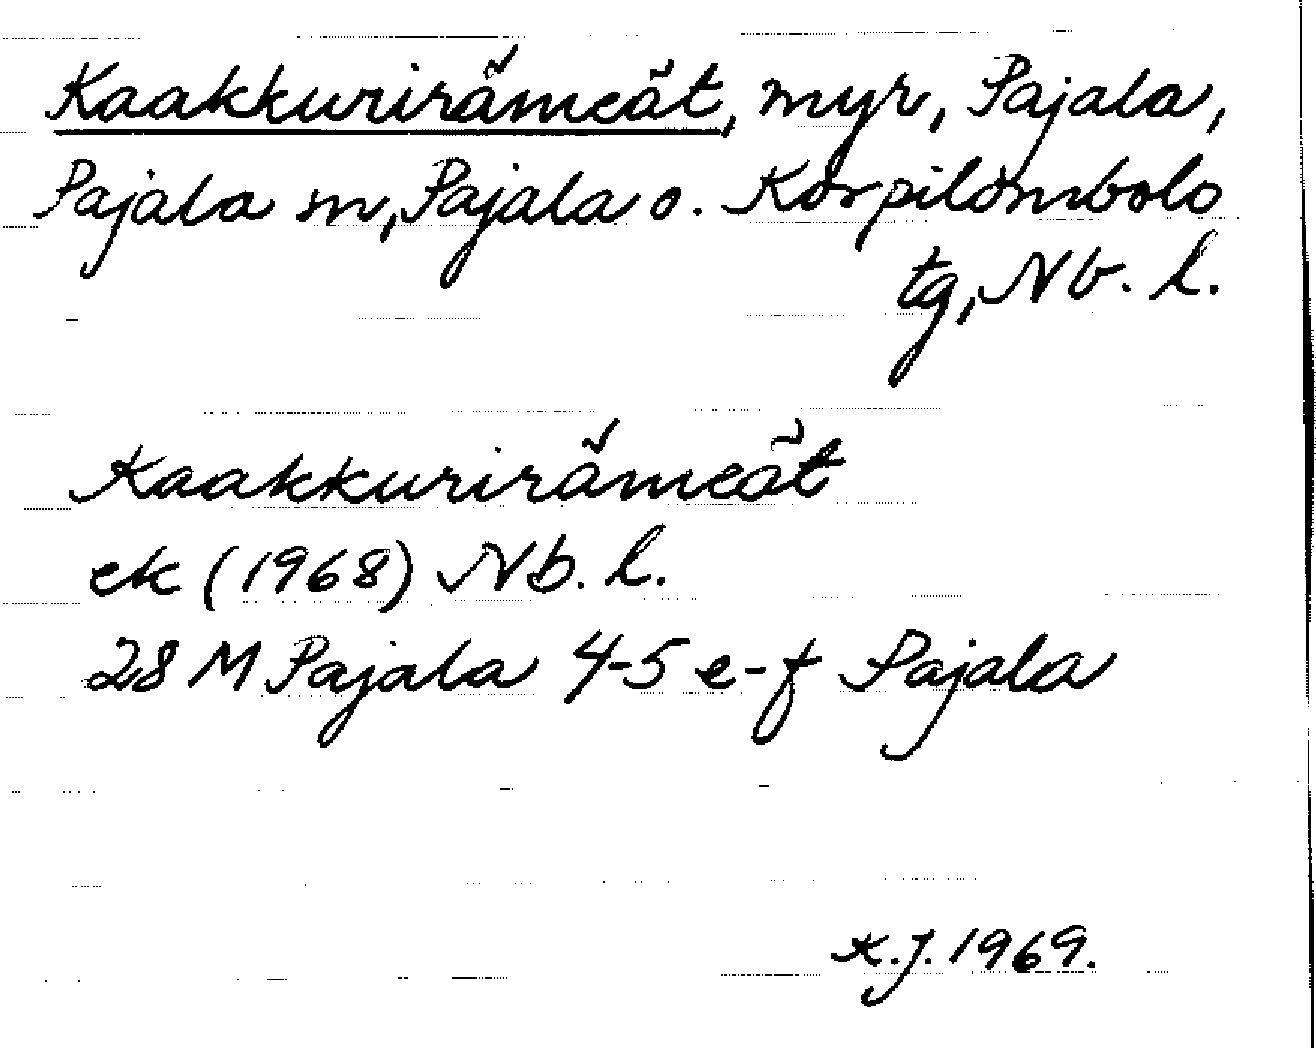 Kaakkurirämeät, myr, Pajala,
Pajala sn, Pajala o. Korpilombolo
tg, Nb. l.
Kaakkurirämeät
ek (1968) Nb. l.
28 M Pajala 4-5 e-f Pajala
K.J. 1969.